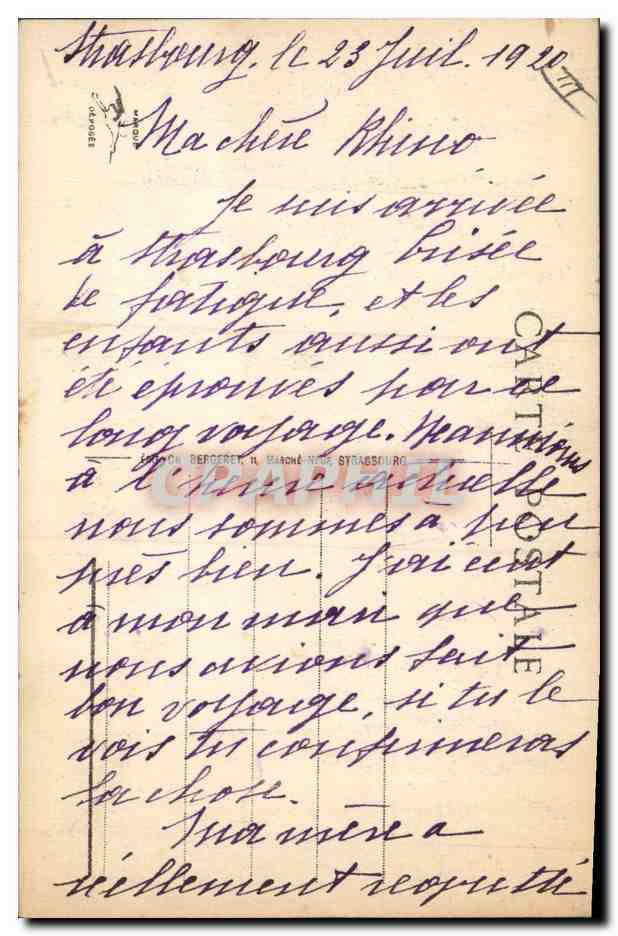 Strasbourg. le 23 Juil. 1920
III
MARQUE
DÉPOSÉE
Ma chère Rhino
Je suis arrivée
à Strasbourg brisée
de fatigue, et les
enfants aussi ont
été éprouvés par ce
long voyage. Néanmoins
BERGERET, 11, MARCHÉ-NEUF, STRASBOURG
CPAPHIL
à l'heure actuelle
nous sommes à peu
près bien. J'ai écrit
à mon mari que
nous avions fait
bon voyage, si tu le
vois tu confirmeras
la chose.
Ma mère a
réellement regretté
CARTE POSTALE